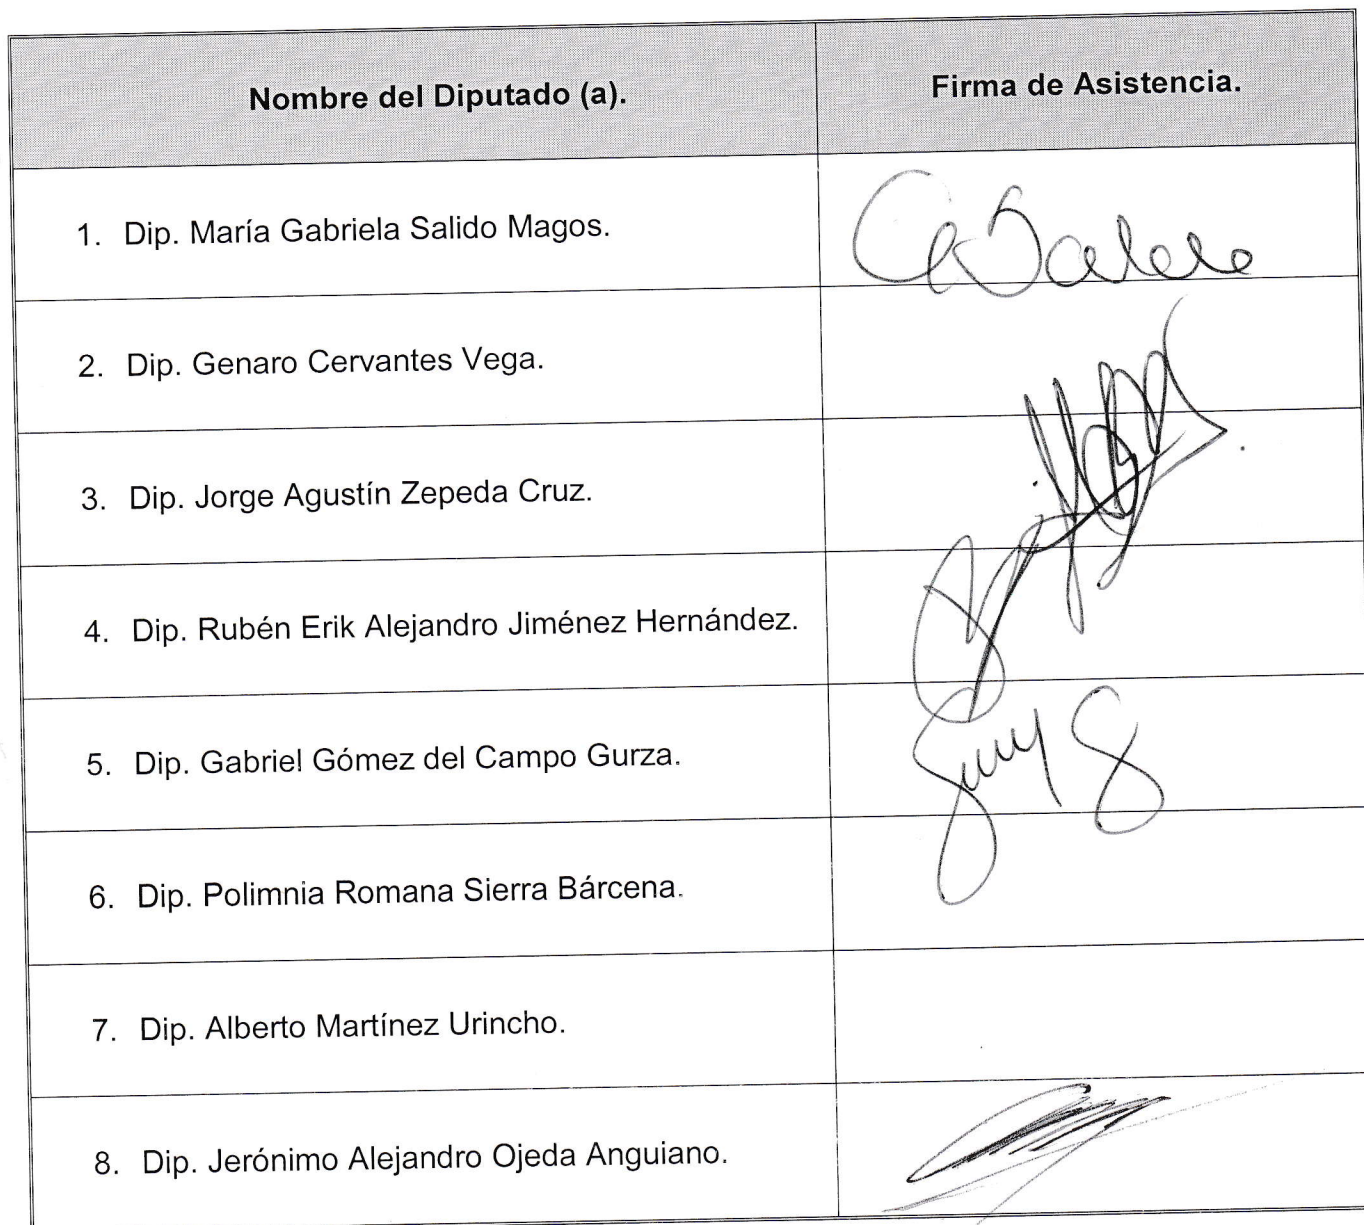 Nombre del Diputado (a).
Firma de Asistencia.
1. Dip. María Gabriela Salido Magos.
2. Dip. Genaro Cervantes Vega.
3. Dip. Jorge Agustín Zepeda Cruz.
4. Dip. Rubén Erik Alejandro Jiménez Hernández.
5. Dip. Gabriel Gómez del Campo Gurza.
6. Dip. Polimnia Romana Sierra Bárcena.
7. Dip. Alberto Martínez Urincho.
8. Dip. Jerónimo Alejandro Ojeda Anguiano.